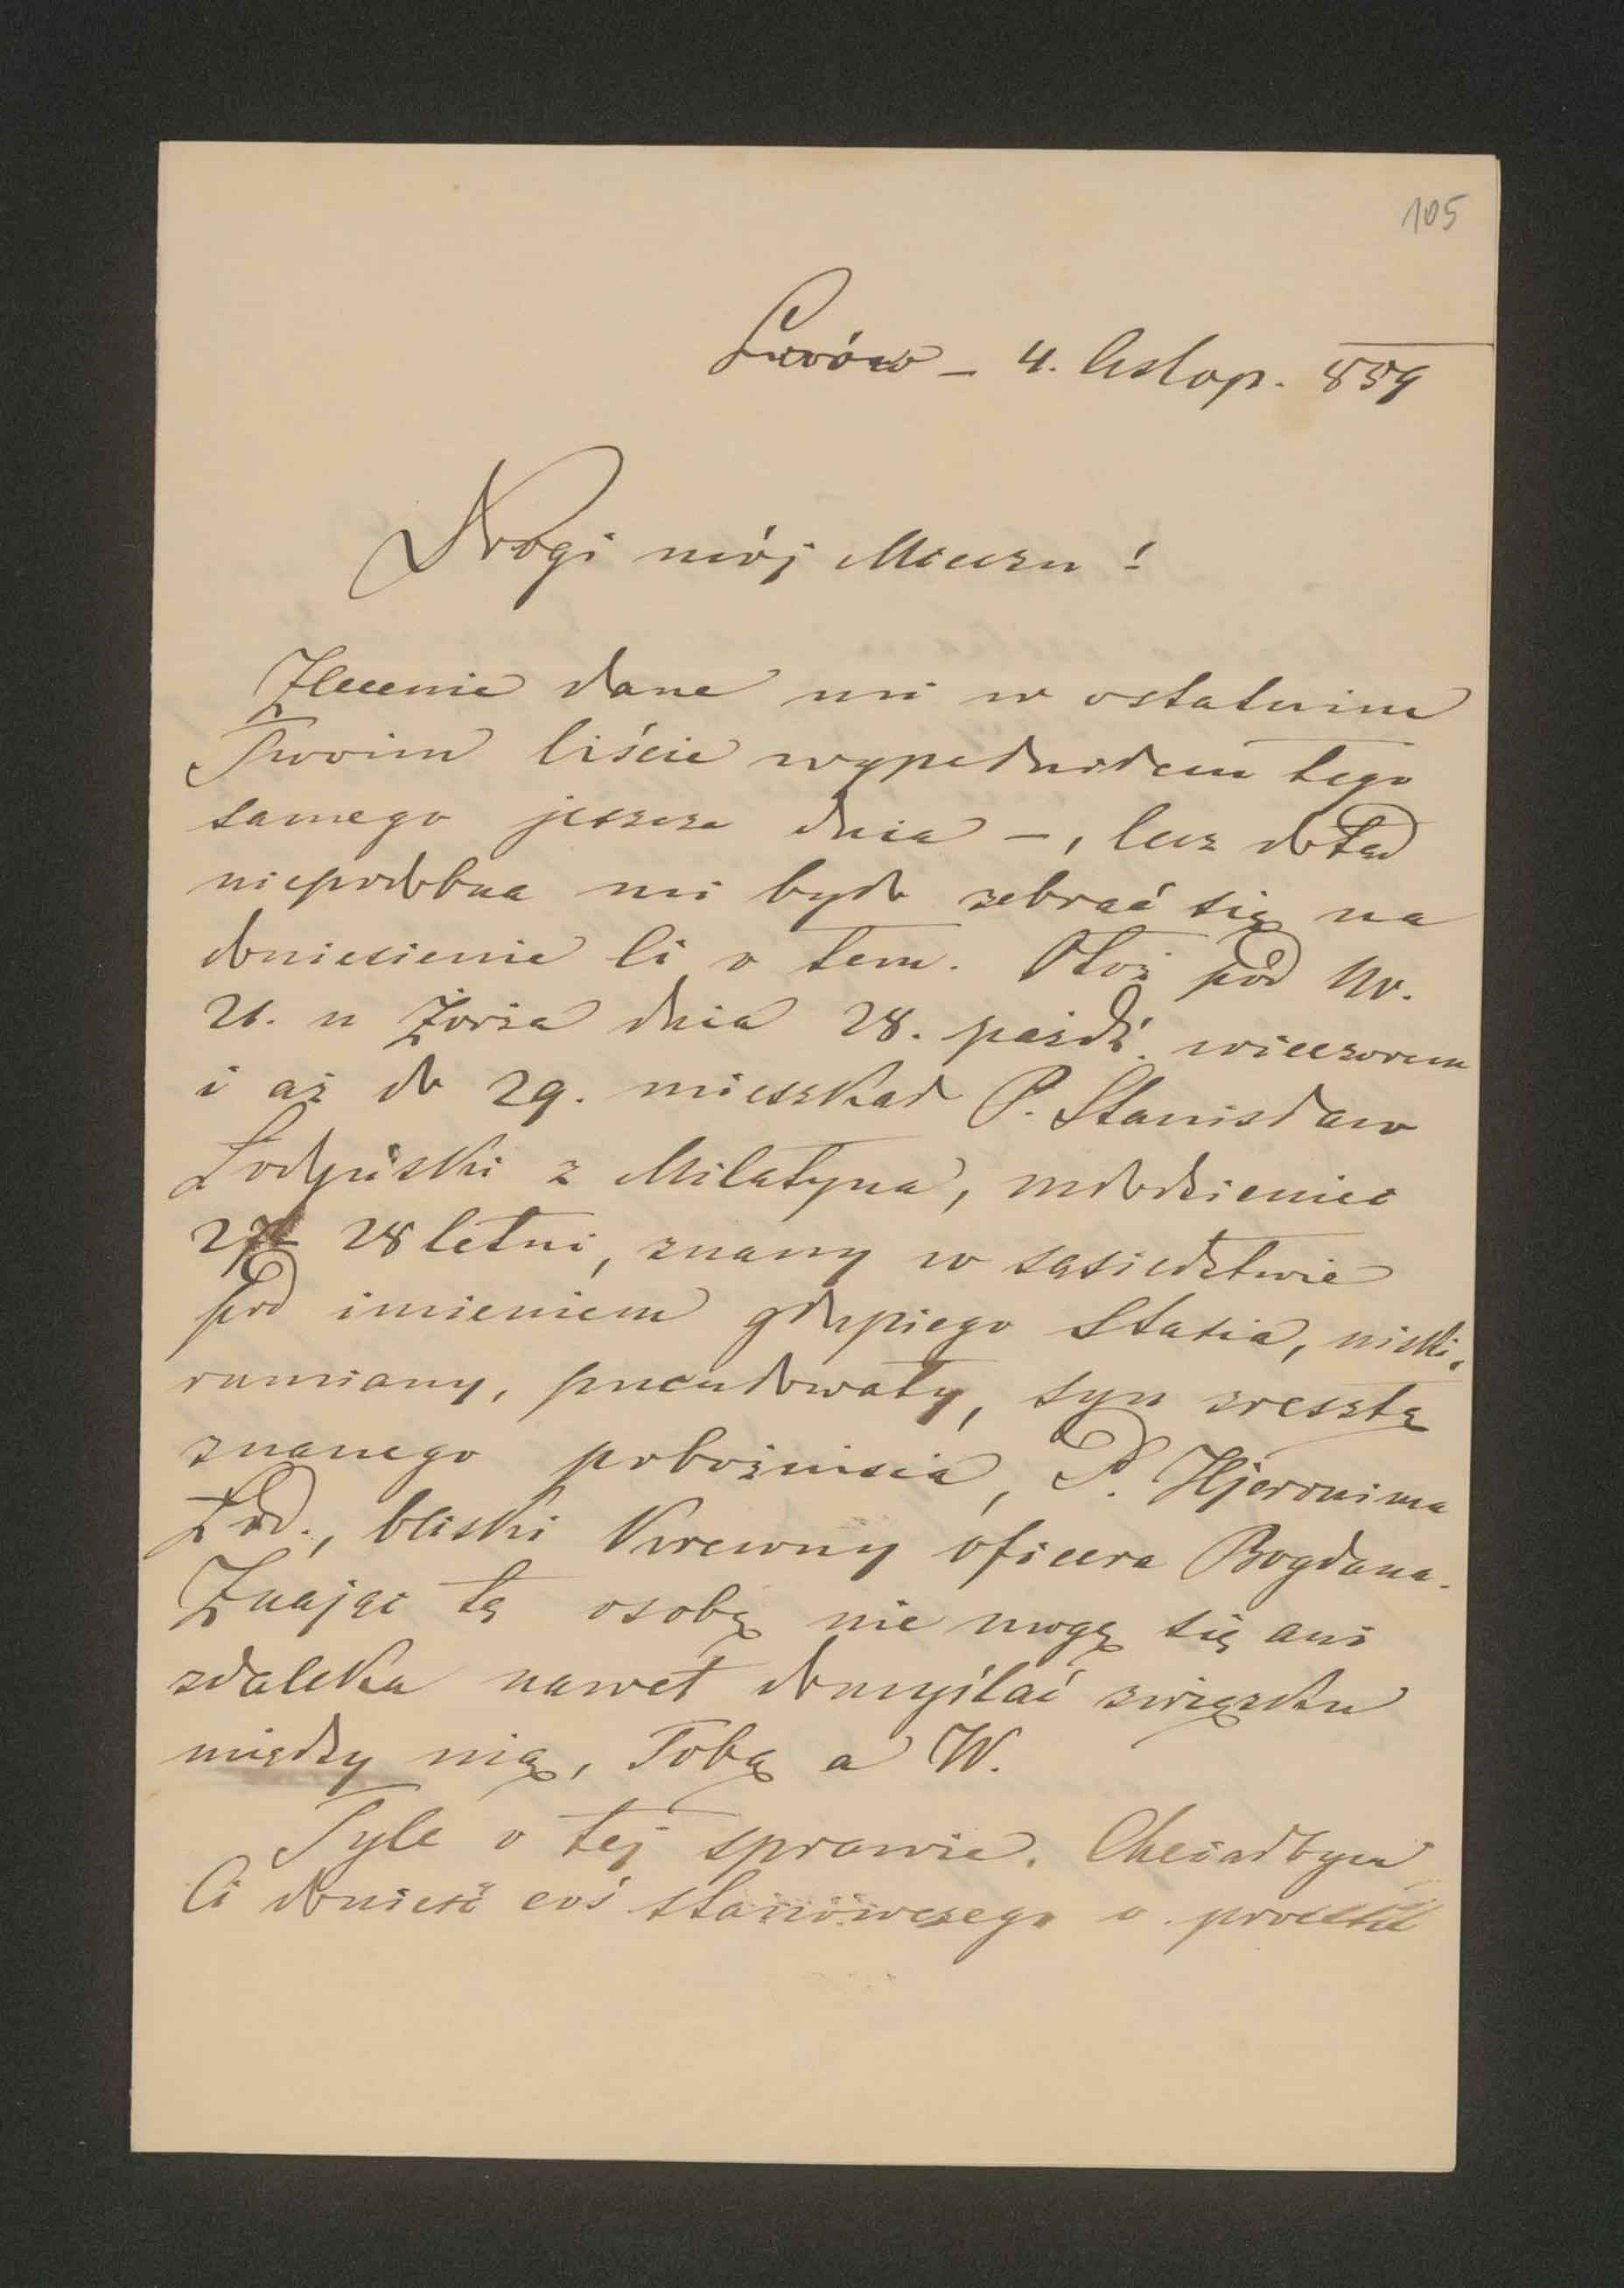 105
Lwów – 4. listop. 859
Drogi mój Mieczu!
Zlecenie dane mi w ostatnim
Twoim liście wypełniłem tego
samego jeszcze dnia –, lecz dotąd
niepodobna mi było zebrać się na
doniesienie Ci o tem. Otóż pod Nr.
21. u Żorża dnia 28. paźdź. wieczorem
i aż do 29. mieszkał P. Stanisław
Łodyński z Milatyna, młodzieniec
27 28 letni, znany w sąsiedztwie
pod imieniem głupiego Stasia, niski,
rumiany, pucułowaty, syn zresztą
znanego pobożnisia, P. Hjeronima
Łod., bliski krewny oficera Bogdana.
Znając tę osobę nie mogę się ani
zdaleka nawet domyślać związku
między nią, Tobą a W.
Tyle o tej sprawie. Chciałbym
Ci donieść coś stanowczego o